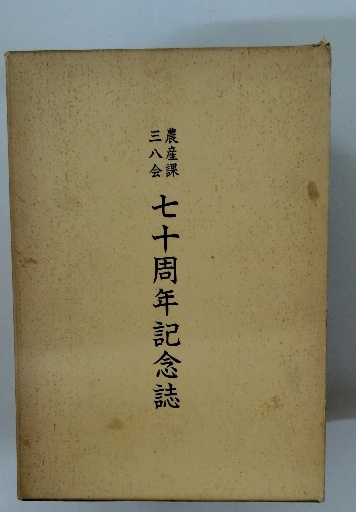 農産課
三八会
七十周年記念誌